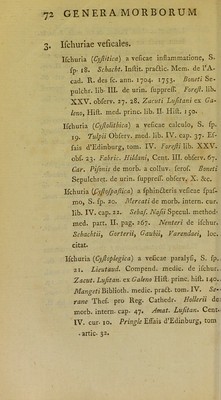 72 GENERA MORBORUM
3. Iſchuriae veſicales.
Iſchuria (Cyſtitica) a veſicae inflammatione, S.
ſp 18. Schacht. Inſtit. practic. Mem. de l'A-
cad. R. des ſc. ann. 1704. 1753. Boneti Se-
pulchr. lib III. de urin. ſuppreſſ. Foreſt. lib.
XXV. obſerv. 27. 28. Zacuti Luſitani ex Ga-
leno, Hiſt. med. princ. lib II. Hiſt. 150.
Iſchuria (Cyſtolithica) a veſicae calculo, S. ſp.
19. Tulpii Obſerv. med. lib. IV. cap. 37. Eſ-
ſais d'Edinburg, tom. IV. Foreſti lib. XXV.
obſ. 23. Fabric. Hildani, Cent. III. obſerv. 67.
Car. Piſonis de morb. a colluv. feroſ. Boneti
Sepulchret. de urin. ſuppreſſ. obſerv, X. &c.
Iſchuria (Cyſtoſpaſtica) a ſphincteris veſicae ſpaſ-
mo, S. ſp. 20. Mercati de morb. intern. cur.
lib. IV. cap. 22. Sebaſ. Naſii Specul. method-
med. part. II. pag. 267. Nenteri de iſchur.
Schachtii, Gorterii, Gaubii, Varendaei, loc.
citat.
Iſchuria (Cyſtoplegica) a veſicae paralyſi, S. ſp.
21. Lieutaud. Compend. medic. de iſchur.
Zacut. Luſitan. ex Galeno Hiſt. princ. hiſt. 140.
Mangeti Biblioth. medic. pract. tom. IV. Se-
rane Theſ. pro Reg. Cathedr. Hollerii de
morb. intern. cap. 47. Amat. Luſitan. Cent-
IV. cur. 10. Pringle Eſſais d'Edinburg, tom
artic. 32.